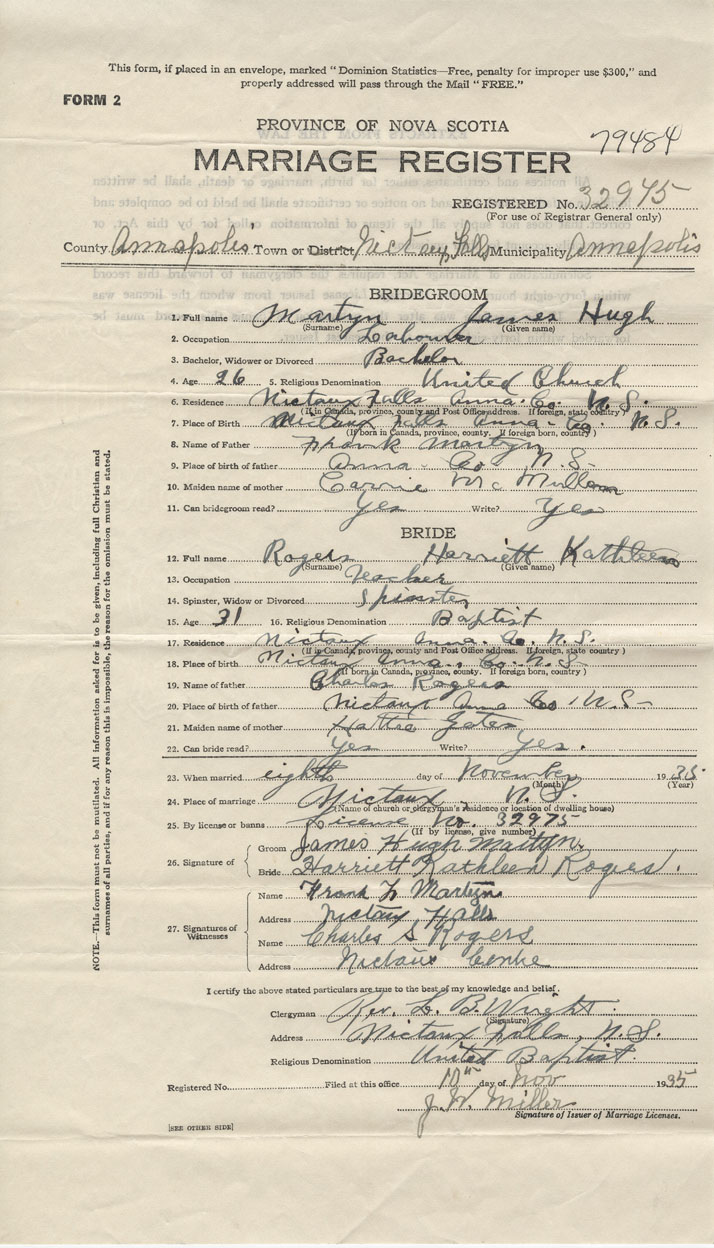 This form, if placed in an envelope, marked “Dominion Statistics—Free, penalty for improper use $300,” and
properly addressed will pass through the Mail “FREE.”
FORM 2
PROVINCE OF NOVA SCOTIA
79484
MARRIAGE REGISTER
REGISTERED No. 32975
(For use of Registrar General only)
County Annapolis Town or District Nictaux Falls Municipality Annapolis
BRIDEGROOM
1. Full name Martyn James Hugh
(Surname) (Given name)
2. Occupation Labourer
3. Bachelor, Widower or Divorced Bachelor
4. Age 26 5. Religious Denomination United Church
6. Residence Nictaux Falls Anna. Co. N.S.
(If in Canada, province, county and Post Office address. If foreign, state country)
7. Place of Birth Nictaux Falls Anna. Co. N.S.
(If born in Canada, province, county. If foreign born, country)
8. Name of Father Frank Martyn
9. Place of birth of father Anna. Co. N.S.
10. Maiden name of mother Carrie McMullen
11. Can bridegroom read? Yes Write? Yes
BRIDE
12. Full name Rogers Harriett Kathleen
(Surname) (Given name)
13. Occupation Teacher
14. Spinster, Widow or Divorced Spinster
15. Age 31 16. Religious Denomination Baptist
17. Residence Nictaux Anna. Co. N.S.
(If in Canada, province, county and Post Office address. If foreign, state country)
18. Place of birth Nictaux Anna. Co. N.S.
(If born in Canada, province, county. If foreign born, country)
19. Name of father Charles Rogers
20. Place of birth of father Nictaux Anna Co. N.S.
21. Maiden name of mother Hattie Gates
22. Can bride read? Yes Write? Yes.
23. When married eighth day of November 1935
(Month) (Year)
24. Place of marriage Nictaux N.S.
(Name of church or clergyman's residence or location of dwelling house)
25. By license or banns License No. 32975
(If by license, give number)
26. Signature of
Groom James Hugh Martyn.
Bride Harriett Kathleen Rogers.
27. Signatures of Witnesses
Name Frank L. Martyn
Address Nictaux Falls
Name Charles S Rogers
Address Nictaux Centre
I certify the above stated particulars are true to the best of my knowledge and belief.
Clergyman Rev. L. B. Wright
(Signature)
Address Nictaux Falls, N.S.
Religious Denomination United Baptist
Registered No. Filed at this office 10th day of Nov 1935
J. W. Miller
Signature of Issuer of Marriage Licenses.
[SEE OTHER SIDE]
NOTE.—This form must not be mutilated. All information asked for is to be given, including full Christian and
surnames of all parties, and if for any reason this is impossible, the reason for the omission must be stated.